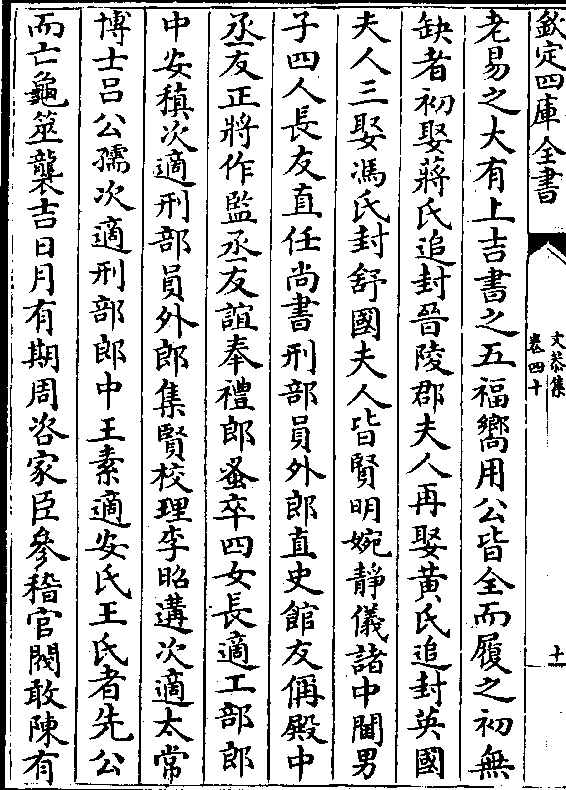 欽定四庫全書
文恭集
卷四十
十
老易之大有上吉書之五福嚮用公皆全而履之初無
缺者初娶蔣氏追封晉陵郡夫人再娶黃氏追封英國
夫人三娶馮氏封舒國夫人皆賢明婉靜儀諸中閫男
子四人長友直任尚書刑部員外郎直史館友偁殿中
丞友正將作監丞友誼奉禮郎蚤卒四女長適工部郎
中安稹次適刑部員外郎集賢校理李昭遘次適太常
博士呂公孺次適刑部郎中王素適安氏王氏者先公
而亡龜筮襲吉日月有期周咨家臣參稽官閥敢陳有